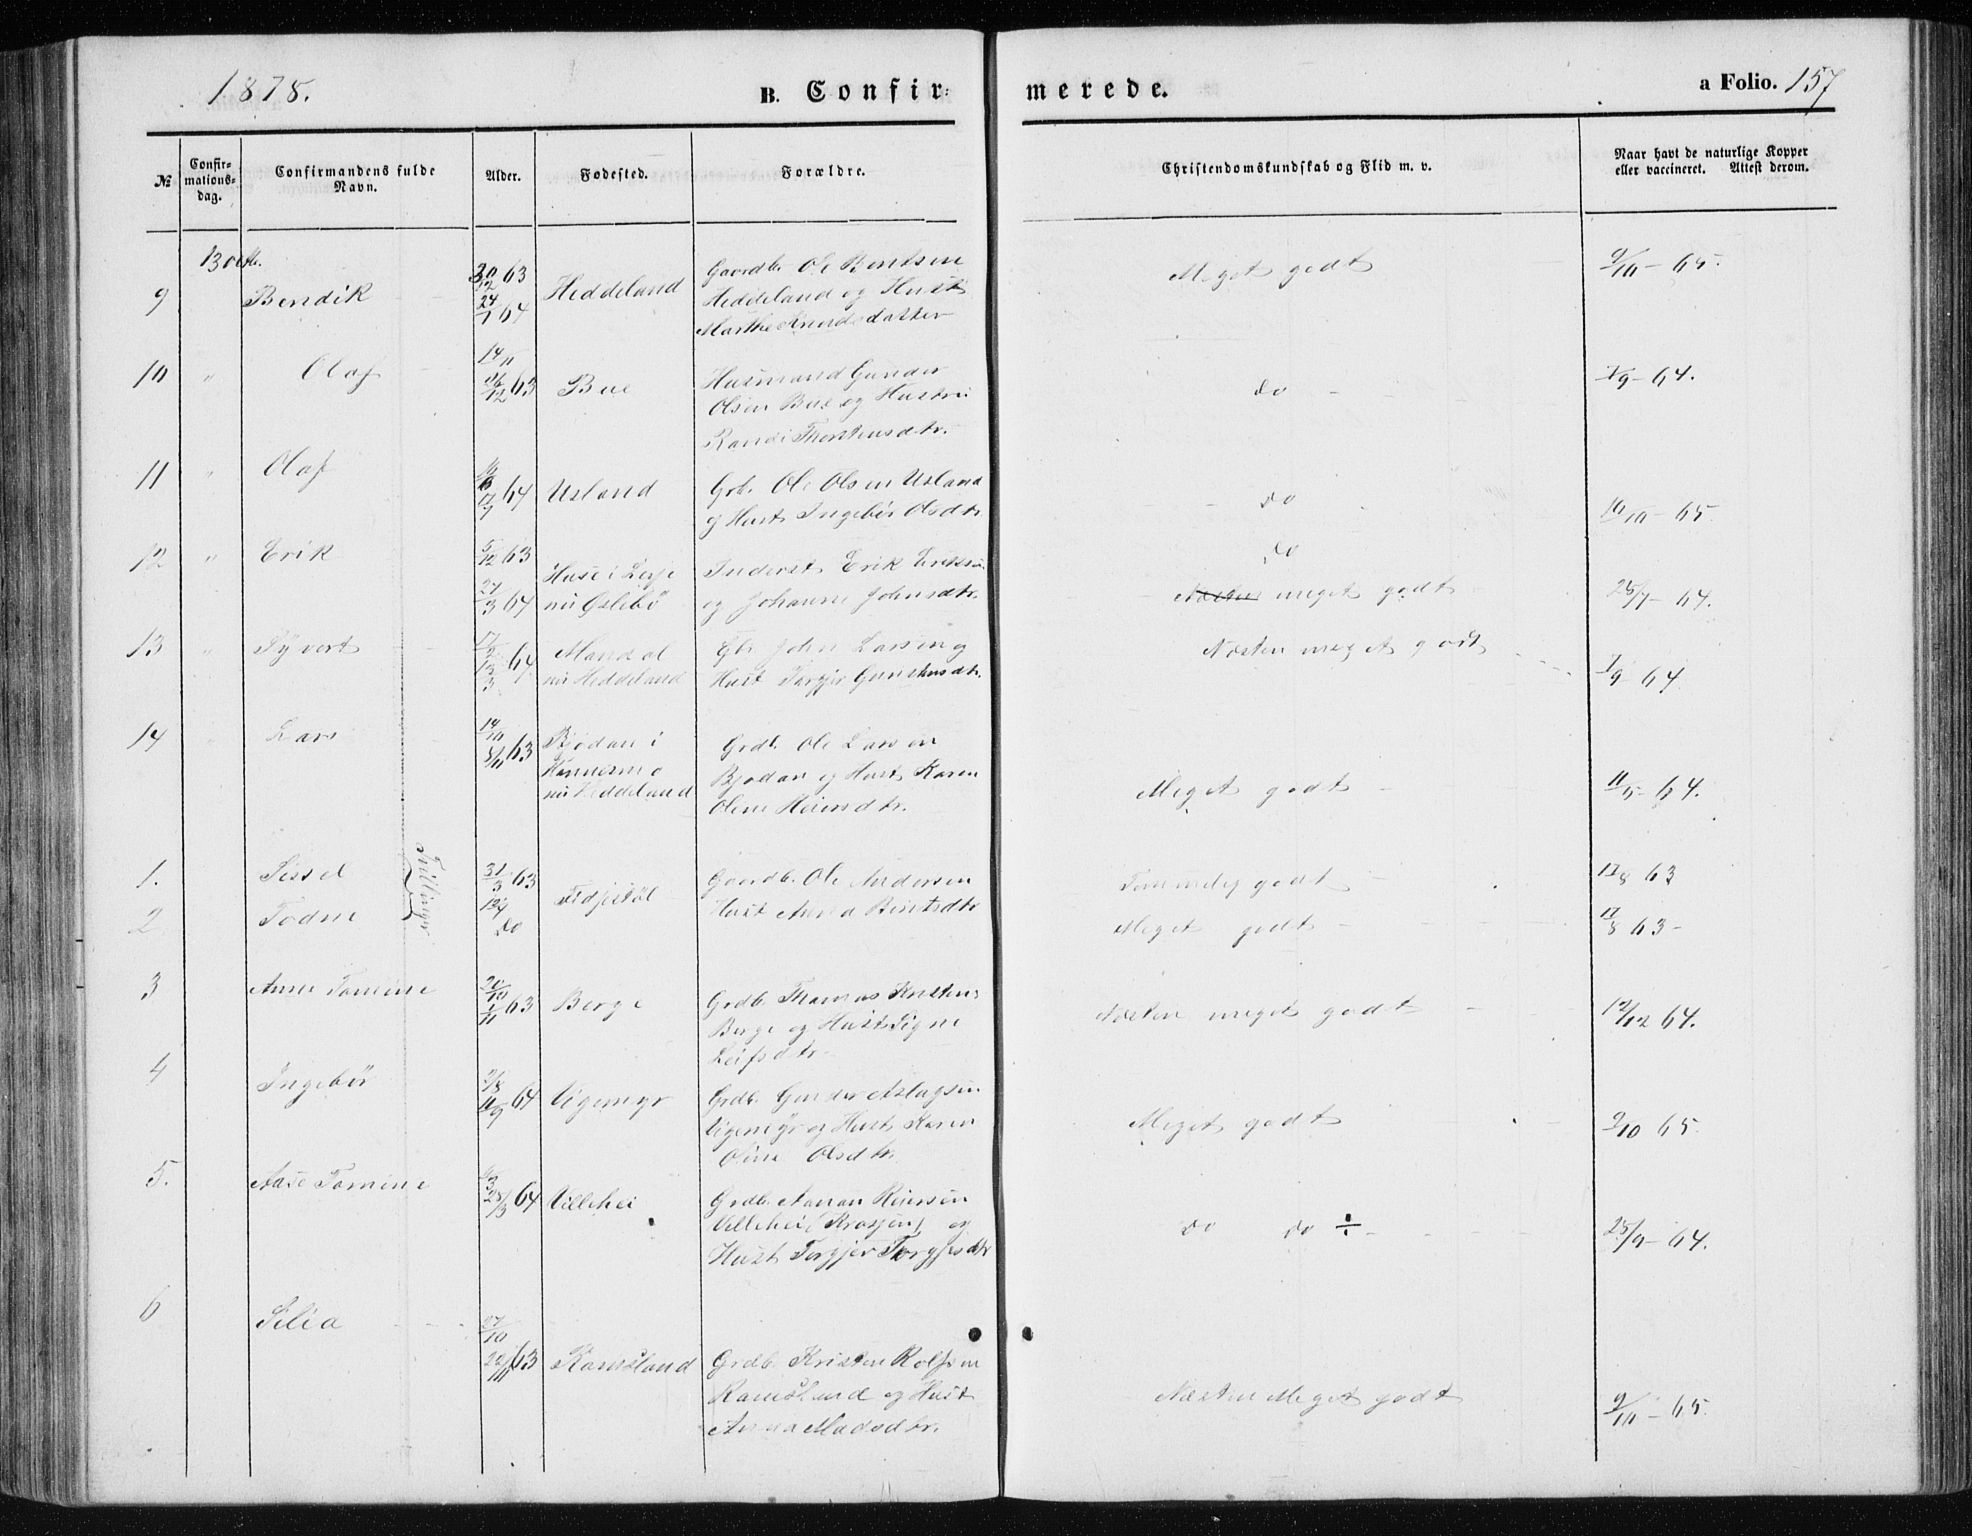 1878.
B. Confir-
merede.
a Folio. 157
№
Confir-
mations-
dag.
Confirmandens fulde
Navn.
Alder.
Fødested.
Forældre.
Christendomskundskab og Flid m. v.
Naar havt de naturlige Kopper
eller vaccineret. Attest derom.
13 octb.
9 Bendik 63 24/1 64 Heddeland
Gaardb. Ole Bentsen
Heddeland og Hust
Marthe Knudsdatter
Meget godt
9/10 - 65.
10 " Olaf 63 Bue
Husmand Gunder
Olsen Bue og Hustru
Randi Thorstensdtr.
do
64.
11 " Olaf 64 Usland
Grb. Ole Olsen Usland
og Hust Ingebor Olsdtr
do
65.
12 " Erik 5/12 63 27/3 64
nu Øslebø
Inderst Erik Eriksen
og Johanne Johnsdtr.
do
Næsten meget godt
25/9 - 64.
13 " Syvert 64 Mandal
nu Heddeland
John Larsen og
Hust
Næsten meget godt
64
14 " Lars 14/10 8/11 63 Bjødan i
nu Heddeland
Grdb. Ole Larsen
Bjødan og Hust Karen
Oline
Meget godt
11/5 - 64.
1. Sissel 31/3 63
2 Todne do
Tvillinger
Gaardb. Ole Andersen
Hust Anna Bentsdtr
Temmelig godt
17/8 63
Meget godt
17/8 63 -
3 Anne Tomine 20/10 1/11 63 Berge
Grdb. Thomas Kristens
Berge og Hust Signe
Leifsdtr
Næsten meget godt
12/12 64.
4 Ingebør 64 Vigemyr
Grdb. Gunder Aslagsen
Vigemyr og Hust Karen
Oline Olsdtr.
Meget godt
9/10 65
5. Aase Tomine 28/3 64 Villehei
Grdb. Aanan Reiersen
Villehei og
Hust Torgjer Torgjesdtr
do do ÷
25/9 - 64.
6 Silia 27/10 22/11 63 Ramsland
Grdb. Kristen Rolfsen
Ramsland og Hust
Anna Madsdtr.
Næsten Meget godt
9/10 - 65.